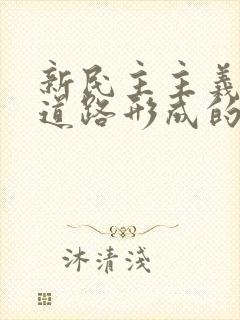 新民主主義
道路形成的
沐清淺